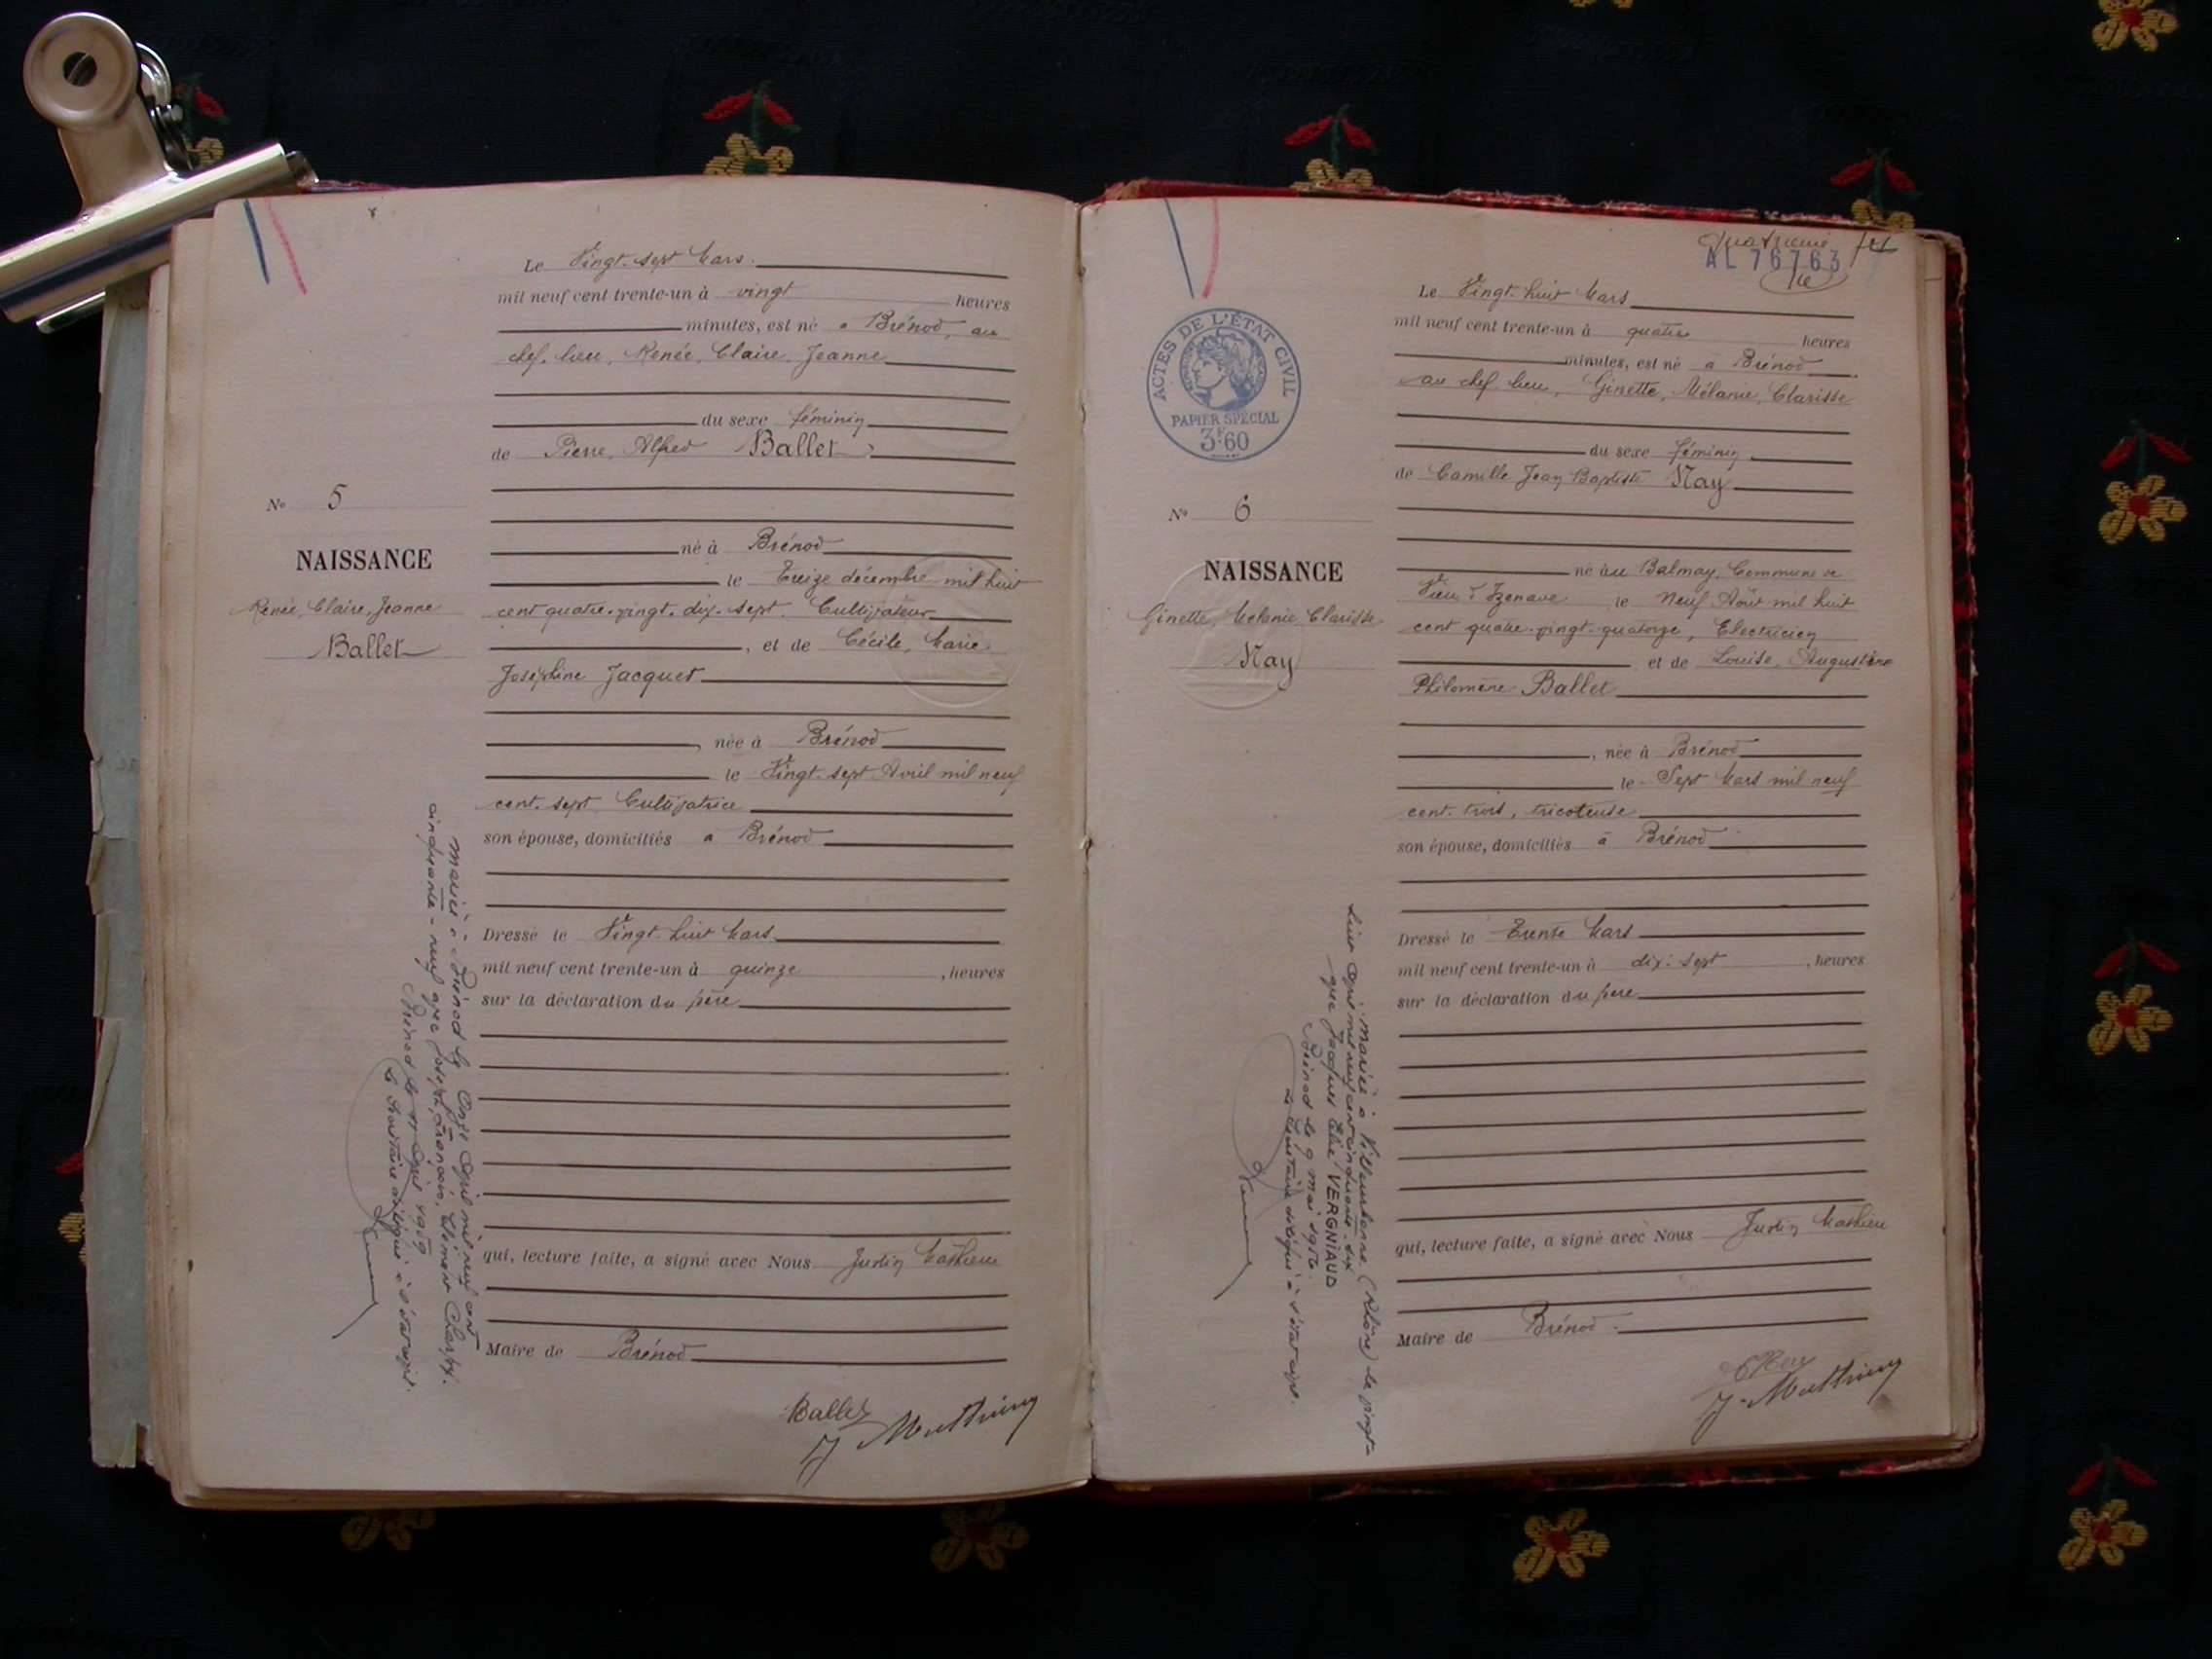 Le Vingt-sept Mars
mil neuf cent trente-un à vingt heures
minutes, est né à Brénod, au
chef-lieu, Renée, Claire, Jeanne
du sexe féminin
de Pierre, Alfred Ballet
né à Brénod
le Treize décembre mil huit
cent quatre-vingt-dix-sept Cultivateur
, et de Cécile, Marie
Joséphine Jacquet
, née à Brénod
le Vingt-sept Avril mil neuf
cent-sept Cultivatrice
son épouse, domiciliés à Brénod
Dressé le Vingt-huit Mars
mil neuf cent trente-un à quinze , heures
sur la déclaration du père
qui, lecture faite, a signé avec Nous Justin Mathieu
Maire de Brénod
Ballet
J Mathieu
No 5
NAISSANCE
Renée, Claire, Jeanne
Ballet
Mariée à Brénod le Onze Avril mil neuf cent
cinquante-neuf avec Joseph, François, Clément
Brénod le 11 Avril 1959
Le Secrétaire délégué à l'état civil.
Quatrième
14
AL 76763
ACTES DE L'ÉTAT CIVIL
RÉPUBLIQUE FRANÇAISE
PAPIER SPÉCIAL
3F60
Le Vingt-huit Mars
mil neuf cent trente-un à quatre heures
minutes, est né à Brénod
au chef lieu, Ginette, Mélanie, Clarisse
du sexe féminin
de Camille Jean Baptiste Nay
né au Balmay, Commune de
Vieu d'Izenave le Neuf Août mil huit
cent quatre-vingt-quatorze, Electricien
et de Louise, Augustine
Philomène Ballet
, née à Brénod
le Sept Mars mil neuf
cent-trois, tricoteuse
son épouse, domiciliés à Brénod
Dressé le Trente Mars
mil neuf cent trente-un à dix-sept , heures
sur la déclaration du père
qui, lecture faite, a signé avec Nous Justin Mathieu
Maire de Brénod
J. Mathieu
No 6
NAISSANCE
Ginette, Mélanie Clarisse
Nay
Mariée à Villeurbanne (Rhône) le vingt-
huit Avril mil neuf cent cinquante-six
avec Jacques Elie VERGNIAUD
Brénod le 9 mai 1956
Le Secrétaire délégué à l'état civil.